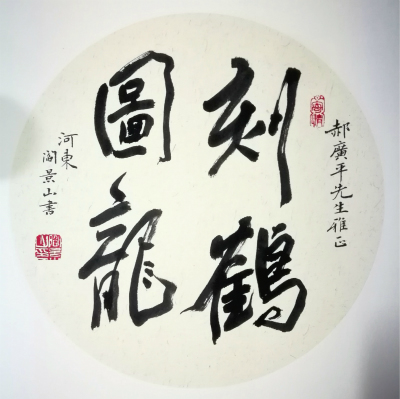 郝廣平先生雅正
刻鶴
圖龍
河東
閻景山書